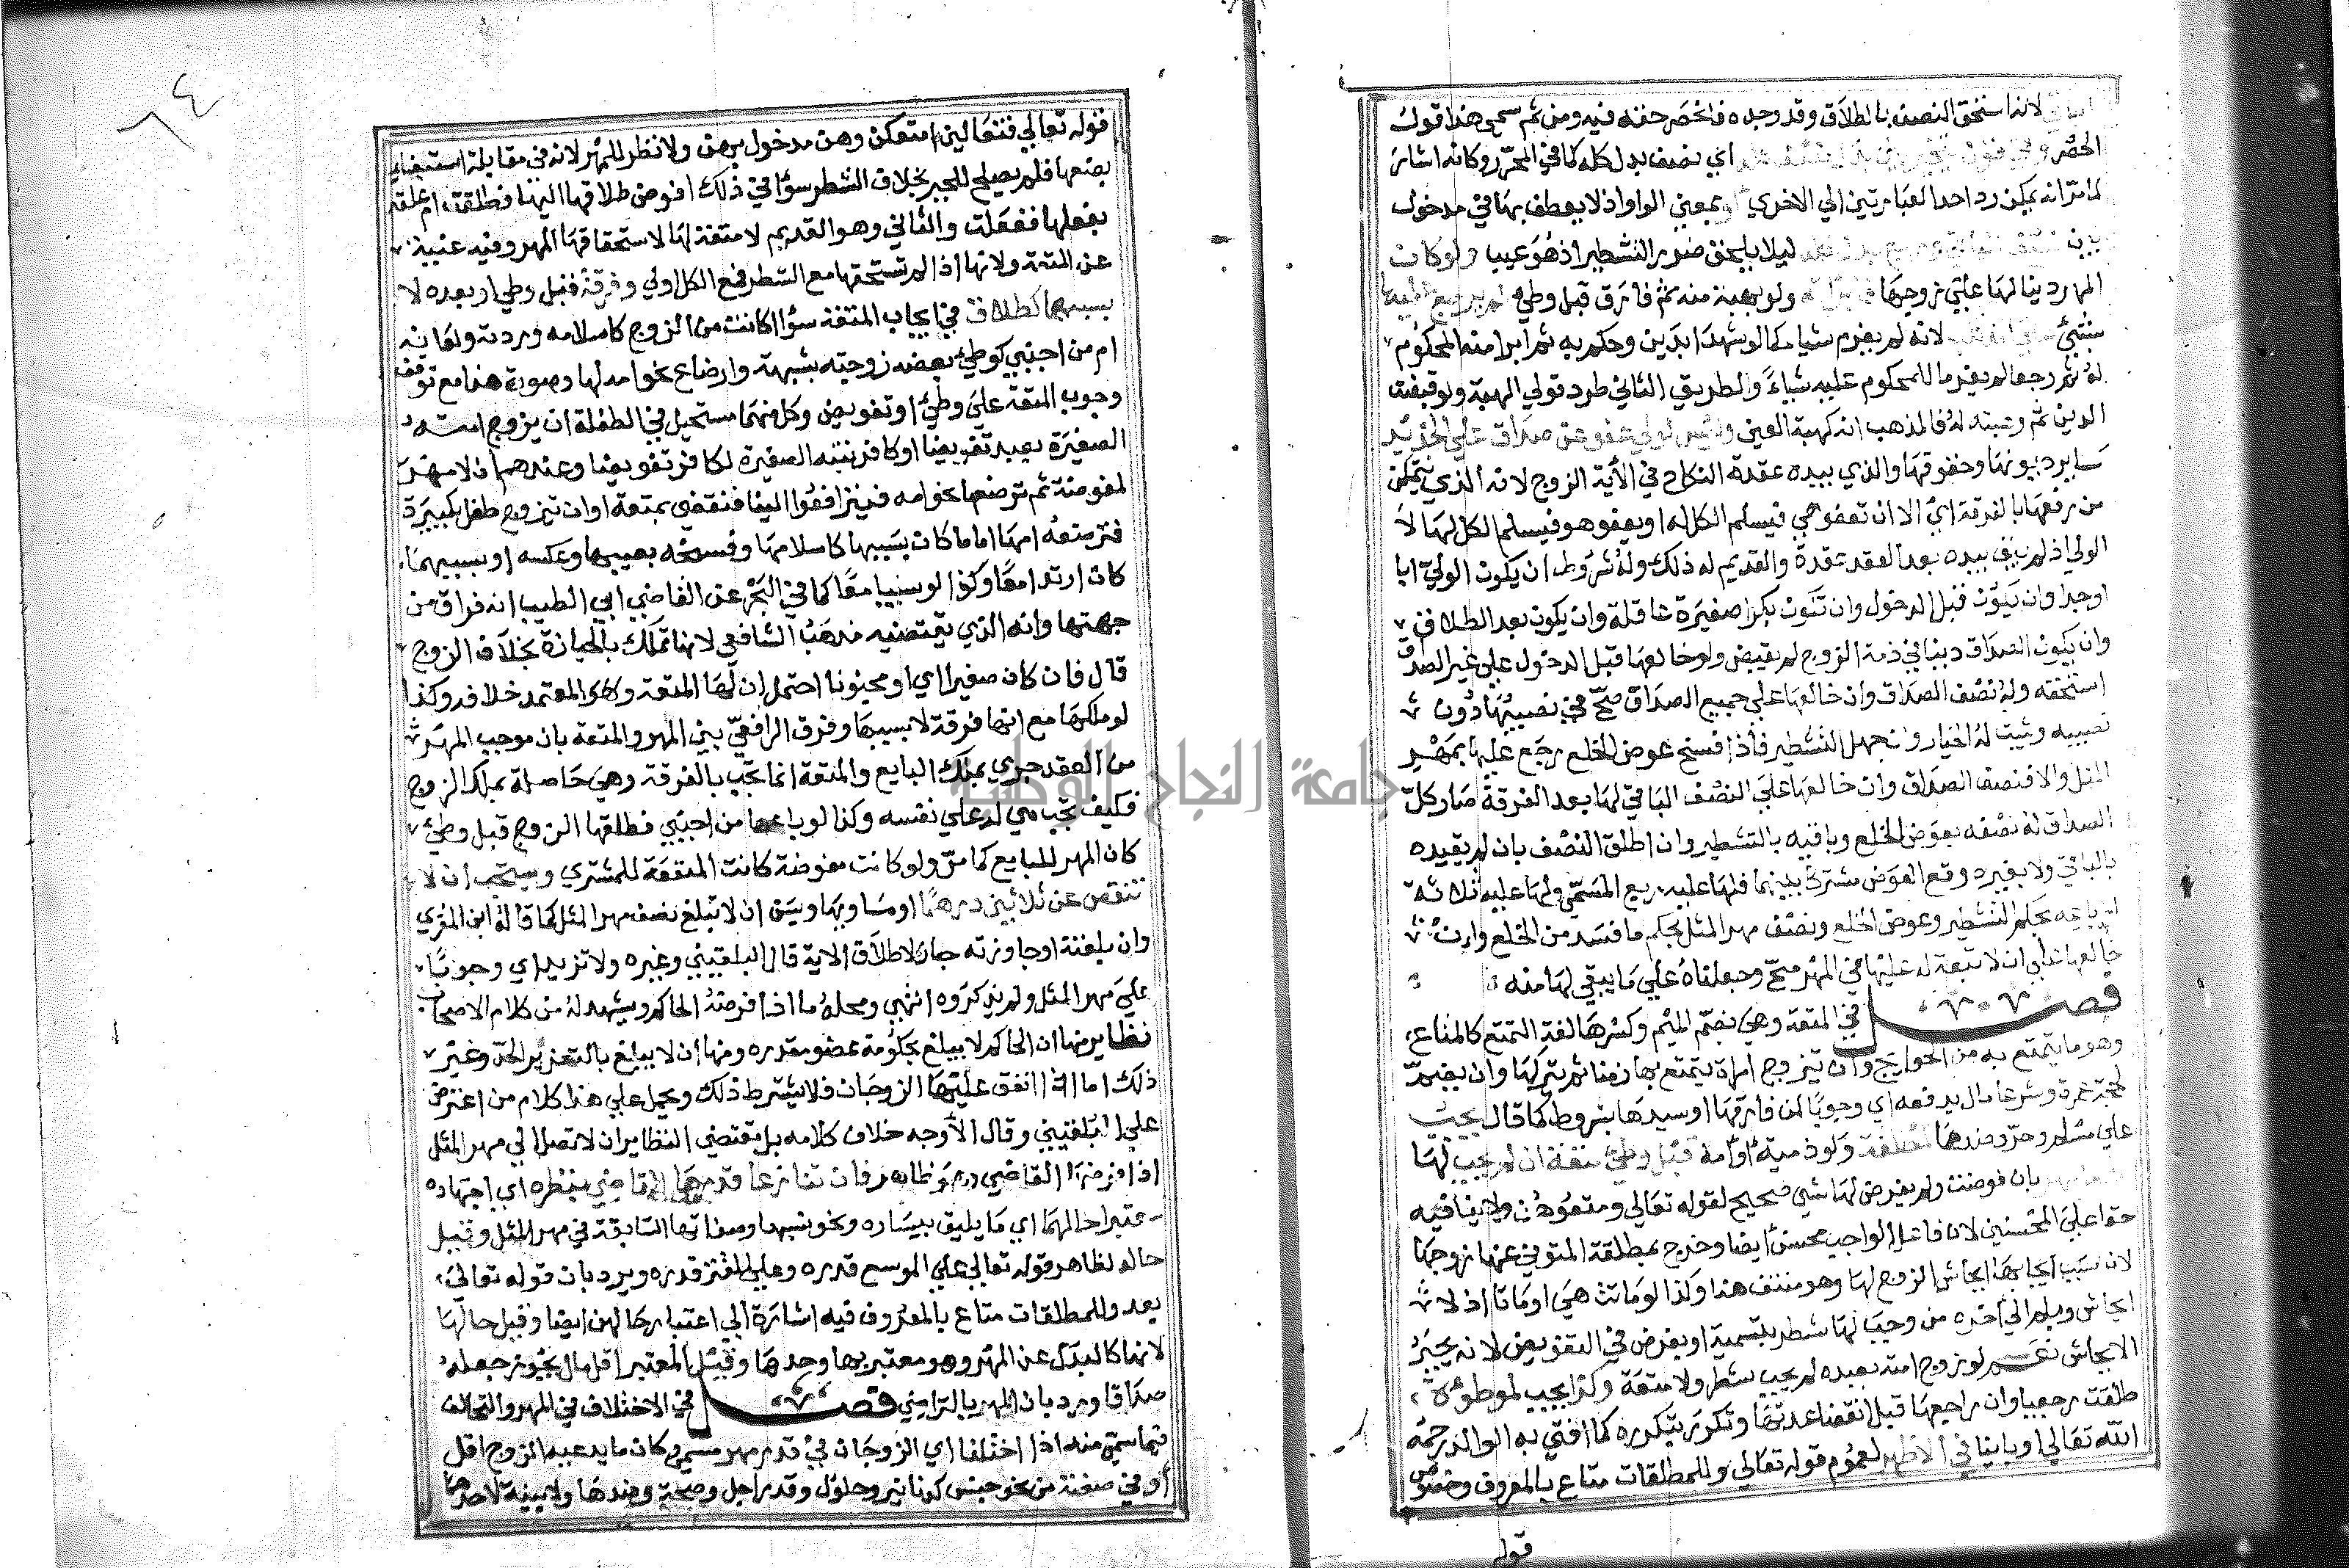 لانه استحق النصف بالطلاق وقد وجده فانحصر حقه فيه ومن ثم سمي هذا قول
الحصر وفي قول اي نصف بدل كله كما في المحرر وكانه اشار
لما مر انه يمكن رد احد العبارتين الي الاخري او بمعني الواو اذ لا يعطف بها في مدخول
بين ليلا يلحق ضرر التشطير اذ هو عيب ولو كان
المهر دينا لها علي زوجها ولو بهبة منه ثم فارق قبل وطي لم يرجع عليها
بشيء لانه لم يغرم شيا كما لو شهدا بدين وحكم به ثم ابرا منه المحكوم
له ثم رجعا لم يغرما للمحكوم عليه شياً والطريق الثاني طرد قولي الهبة ولو قبضت
الدين ثم وهبته له فالمذهب انه كهبة العين وليس لولي عفو عن صداق علي الجديد
كساير ديونها وحقوقها والذي بيده عقدة النكاح في الآية الزوج لانه الذي يتمكن
من رفعها بالفرقة اي الا ان تعفو هي فيسلم الكل له او يعفو هو فيسلم الكل لها لا
الولي اذ لم يبق بيده بعد العقد عقدة والقديم له ذلك وله شروط ان يكون الولي ابا
او جدا وان يكون قبل الدخول وان تكون بكرا صغيرة عاقلة وان يكون بعد الطلاق
وان يكون الصداق دينا في ذمة الزوج لم يقبض ولو خالعها قبل الدخول علي غير الصداق
استحقه وله نصف الصداق وان خالعها علي جميع الصداق صح في نصيبها دون
نصيبه ويثبت له الخيار ان جهل التشطير فاذا فسخ عوض الخلع رجع عليها بمهر
المثل والا فنصف الصداق وان خالعها علي النصف الباقي لها بعد الفرقة صار كل
الصداق له نصفه بعوض الخلع وباقيه بالتشطير وان اطلق النصف بان لم يقيده
بالباقي ولا بغيره وقع العوض مشتركا بينهما فلها عليه ربع المسمي وله عليها ثلاثة
ارباعه بحكم التشطير وعوض الخلع ونصف مهر المثل بحكم ما فسد من الخلع وان
خالعها علي ان لا تبعة له عليها في المهر صح وجعلناه علي ما يبقي لها منه
فصل في المتعة وهي بضم الميم وكسرها لغة التمتع كالمتاع
وهو ما يتمتع به من الحوايج وان تتزوج امراة يتمتع بها زمنا ثم يتركها وان يضم
لحجه عمرة وشرعا مال يدفعه اي وجوبا لمن فارقها او سيدها بشروط كما قال يجب
علي مسلم وحر وضدهما لمطلقة ولو ذمية او امة قبل وطي متعة ان لم يجب لها
بان فوضت ولم يفرض لها شي صحيح لقوله تعالي ومتعوهن ولا ينافيه
حقا علي المحسنين لان فاعل الواجب محسن ايضا وخرج بمطلقة المتوفي عنها زوجها
لان سبب ايجابها ايحاش الزوج لها وهو منتف هنا وكذا لو ماتت هي او ماتا اذ لا
ايحاش ويعلم الي اخره من وجب لها شطر بتسمية او بفرض في التفويض لانه يجبر
الايحاش نعم لو زوج امته بعبده لم يجب شطر ولا متعة وكذا يجب لموطوءة
طلقت رجعيا وان راجعها قبل انقضا عدتها وتكرر بتكرره كما افتي به الوالد رحمه
الله تعالي او باينا في الاظهر لعموم قوله تعالي وللمطلقات متاع بالمعروف وخصوص
قوله
٦٤
قوله تعالي فتعالين امتعكن وهن مدخول بهن ولا نظر للمهر لانه في مقابلة استيفاء
بضعها فلم يصلح للجبر بخلاف الشطر سوا في ذلك افوض طلاقها اليها فطلقت ام علقه
بفعلها ففعلت والثاني وهو القديم لا متعة لها لاستحقاقها المهر وفيه غنية
عن المتعة ولانها اذا لم تستحقها مع الشطر فمع الكل اولي وفرقة قبل وطي او بعده لا
بسببها كطلاق في ايجاب المتعة سوا اكانت من الزوج كاسلامه وردته ولعانه
ام من اجنبي كوطي بعضه زوجته بشبهة وارضاع نحو امه لها وصورة هذا مع توقف
وجوب المتعة علي وطي او تفويض وكل منهما مستحيل في الطفلة ان يزوج امته
الصغيرة بعبد تفويضا او كافر بنته الصغيرة لكافر تفويضا وعندهم ان لا مهر
لمفوضة ثم ترضعها نحو امه فيترافعوا الينا فنقضي بمتعة او ان تتزوج طفل بكبيرة
فترضعه امها اما ما كان بسببها كاسلامها وفسخه بعيبها وعكسه او بسببهما
كان ارتدا معا وكذا لو سبيا معا كما في البحر عن القاضي ابي الطيب انه فراق من
جهتها وانه الذي يقتضيه مذهب الشافعي لانها تملك بالحيازة بخلاف الزوج
قال فان كان صغيرا اي او مجنونا احتمل ان لها المتعة وهو المعتمد خلافه وكذا
لو ملكها مع انها فرقة لا بسببها وفرق الرافعي بين المهر والمتعة بان موجب المهر
من العقد جري بملك البايع والمتعة انما تجب بالفرقة وهي حاصلة بملك الزوج
فكيف تجب هي له علي نفسه وكذا لو باعها من اجنبي فطلقها الزوج قبل وطي
كان المهر للبايع كما مر ولو كانت مفوضة كانت المتعة للمشتري ويستحب ان لا
تنقص عن ثلاثين درهما او مساويها ويسن ان لا تبلغ نصف مهر المثل كما قاله ابن المقري
وان بلغته او جاوزته جاز لاطلاق الآية قال البلقيني وغيره ولا تزيد اي وجوبا
علي مهر المثل ولم يذكروه انتهي ومحله ما اذا فرضه الحاكم ويشهد له من كلام الاصحاب
نظاير منها ان الحاكم لا يبلغ بحكومة عضو مقدره ومنها ان لا يبلغ بالتعزير الحد وغير
ذلك اما اذا اتفق عليها الزوجان فلا يشترط ذلك ويحمل علي هذا كلام من اعترض
علي البلقيني وقال الأوجه خلاف كلامه بل مقتضي النظاير ان لا تصل الي مهر المثل
اذا فرضها القاضي فان تنازعا قدرها القاضي بنظره اي اجتهاده
معتبرا حالهما اي ما يليق بيساره ونحو نسبها وصفاتها السابقة في مهر المثل وقيل
حاله لظاهر قوله تعالي علي الموسع قدره وعلي المقتر قدره ويرد بان قوله تعالي
بعد وللمطلقات متاع بالمعروف فيه اشارة الي اعتبار حالهن ايضا وقيل حالها
لانها كالبدل عن المهر وهو معتبر بها وحدها وقيل المعتبر اقل مال يجوز جعله
صداقا ويرد بان المهر بالتراضي فصل في الاختلاف في المهر والتحالف
فيما سمي منه اذا اختلفا اي الزوجان في قدر مهر مسمي وكان ما يدعيه الزوج اقل
أو في صفته من نحو جنس كدنانير وحلول وقدر اجل وصحة وضدها ولا بينة لاحدهما
جامعة النجاح الوطنية